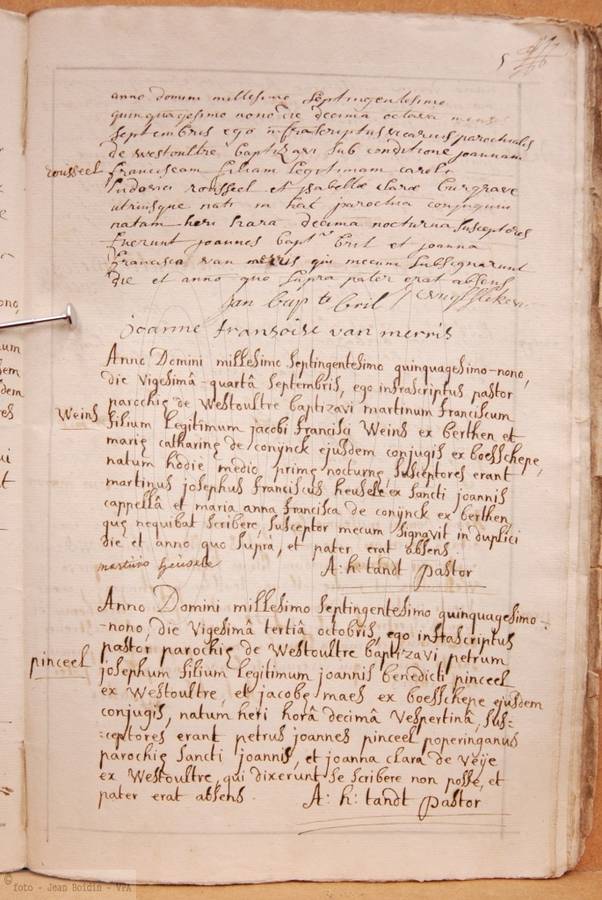 5
anno domini millesimo septingentesimo
quinquagesimo nono die decima octava mensis
septembris ego infrascriptus vicarius parochialis
de westoultre baptizavi sub conditione joannam
rousseel
franciscam filiam legitimam caroli
ludovici rousseel et isabellæ claræ burgrave
utriusque nati in hac parochia conjugum
natam heri hora decima nocturna susceptores
fuerunt joannes bapt. bril et joanna
francisca van merris qui mecum subsignarunt
die et anno quo supra pater erat absens
jan bap te bril
joanne fransoise van merris
Anno Domini millesimo septingentesimo quinquagesimo-nono,
die vigesimâ-quartâ septembris, ego infrascriptus pastor
parochię de Westoultre baptizavi martinum franciscum
Weins
filium legitimum jacobi francisci Weins ex berthen et
marię catharinę de coninck ejusdem conjugis ex boesschepe,
natum hodie medio primę nocturnę, susceptores erant
martinus josephus franciscus heusele ex sancti joannis
cappellâ et maria anna francisca de coninck ex berthen,
quę nequibat scribere, susceptor mecum signavit in duplici
die et anno quo suprà, et pater erat absens.
A: h: tandt pastor
Anno Domini millesimo septingentesimo quinquagesimo-
-nono, die vigesimâ tertiâ octobris, ego infrascriptus
pastor parochię de Westoultre baptizavi, petrum
pinceel
josephum filium legitimum joannis benedicti pinceel
ex Westoultre, et jacobę maes ex boesschepe ejusdem
conjugis, natum heri horâ decimâ vespertinâ, sus=
=ceptores erant petrus joannes pinceel poperinganus
parochię sancti joannis, et joanna clara de veije
ex Westoultre, qui dixerunt se scribere non posse, et
pater erat absens.
A: h: tandt pastor
© foto - Jean Boidin - VPA